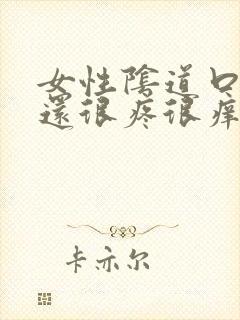 女性陰道口
還很疼很痒
卡亦尔